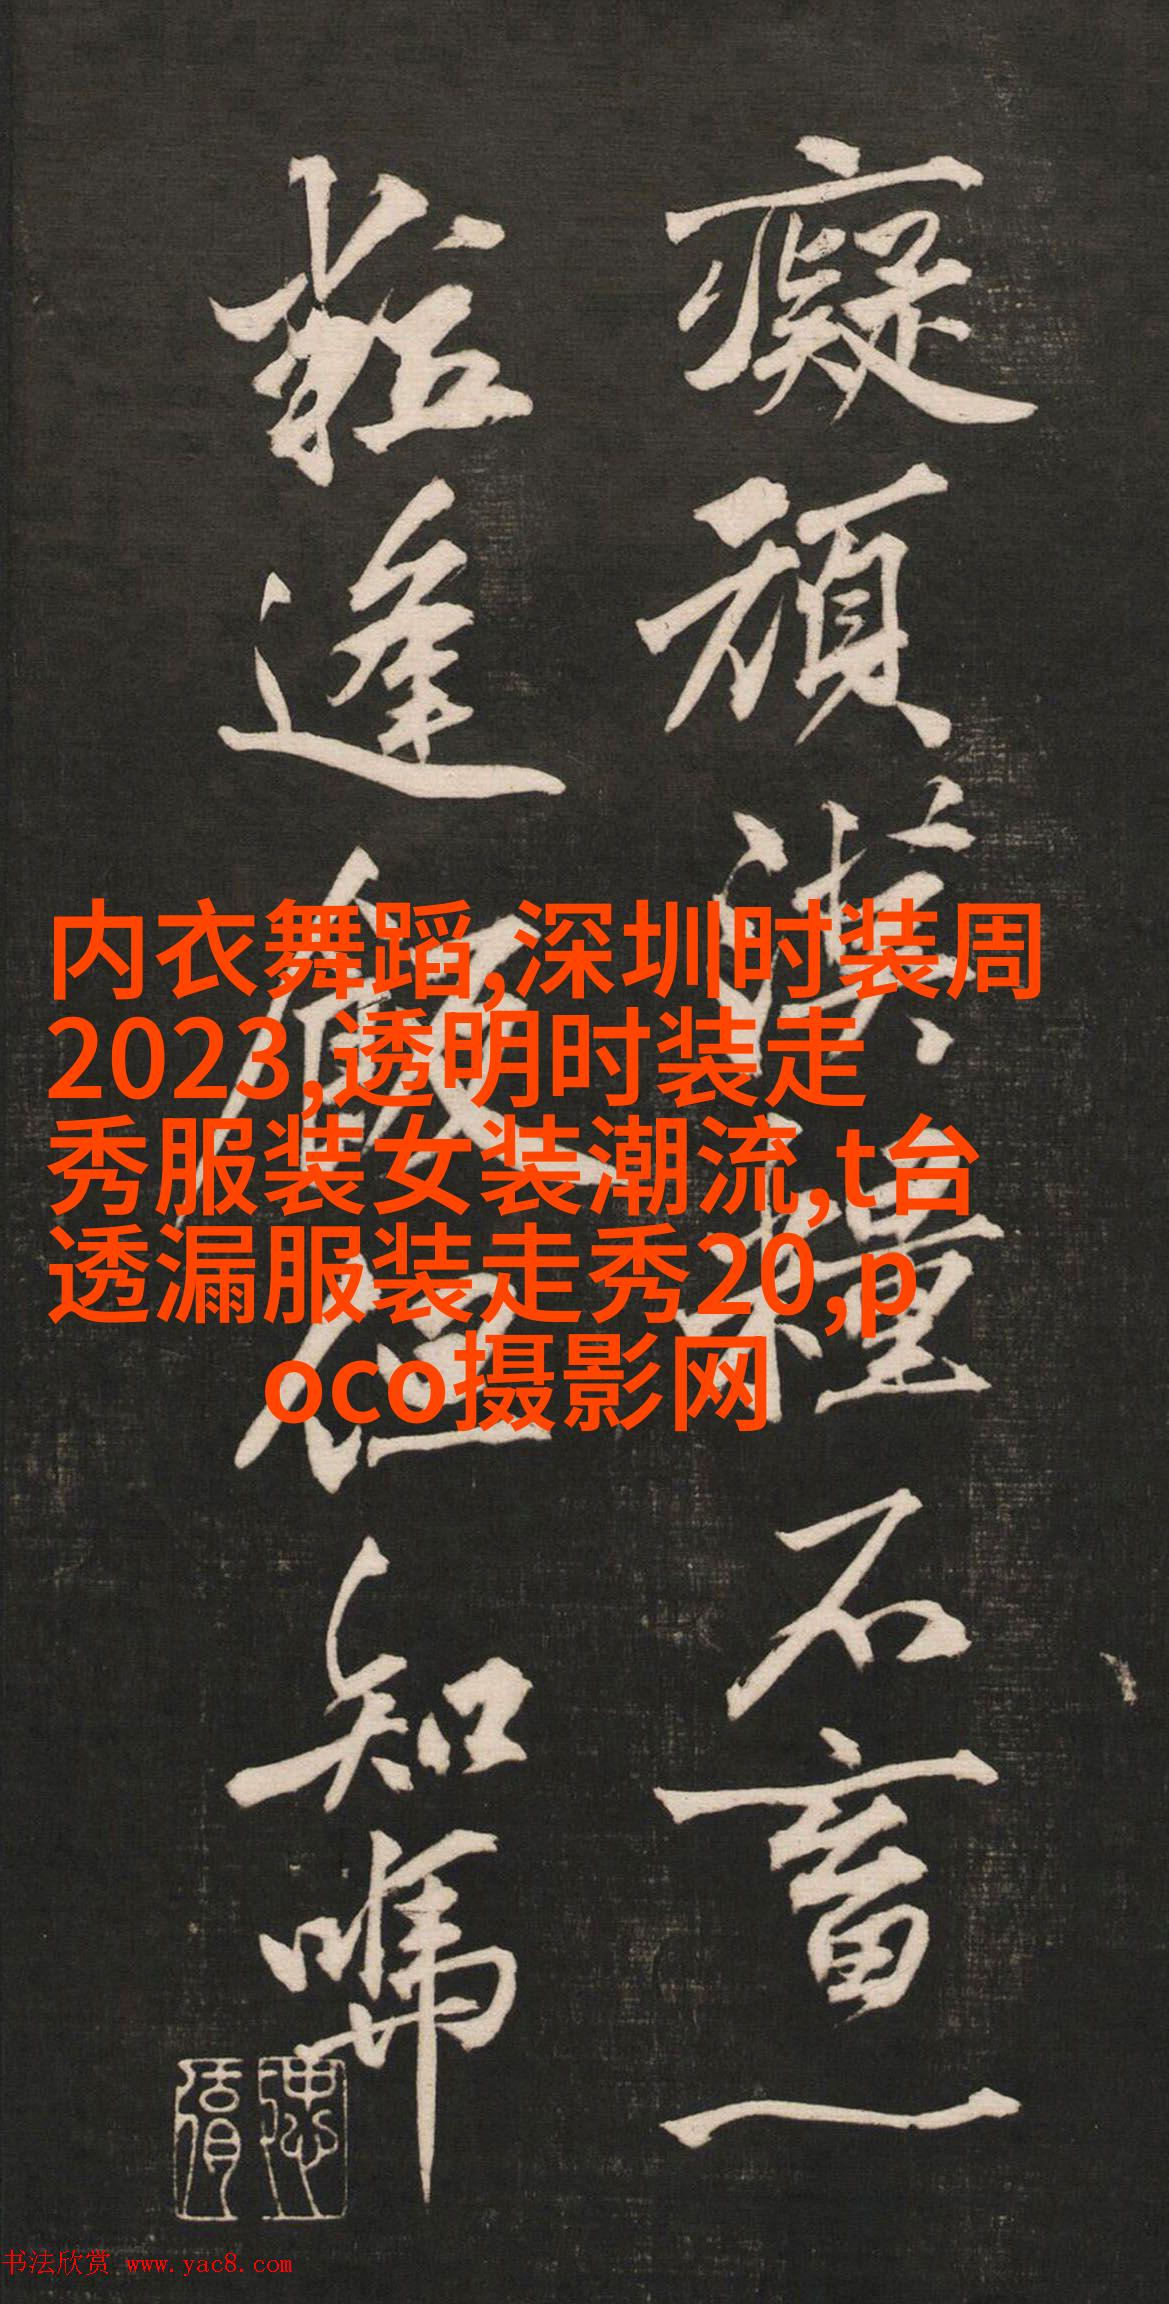 癡頑漢種石畜一
逢飯但知
内衣舞蹈,深圳时装周
2023,透明时装走
秀服装女装潮流,t台
透漏服装走秀20,p
oco摄影网
书法欣赏 www.yac8.com